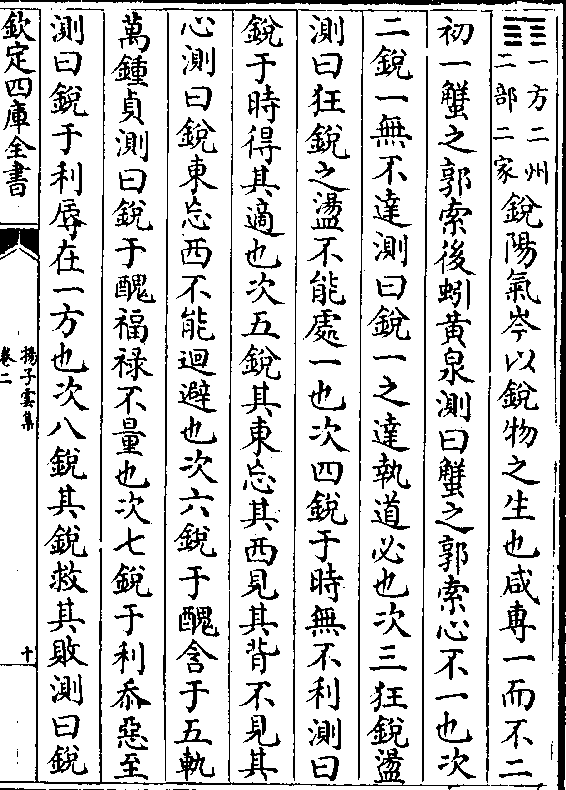 一方二州
二部二家
銳陽氣岑以銳物之生也咸専一而不二
初一蟹之郭索後蚓黃泉測曰蟹之郭索心不一也次
二銳一無不達測曰銳一之達執道必也次三狂銳盪
測曰狂銳之盪不能處一也次四銳于時無不利測曰
銳于時得其適也次五銳其東忘其西見其背不見其
心測曰銳東忘西不能迴避也次六銳于醜含于五軌
萬鍾貞測曰銳于醜福祿不量也次七銳于利忝惡至
測曰銳于利辱在一方也次八銳其銳救其敗測曰銳
欽定四庫全書
揚子雲集
卷二
十